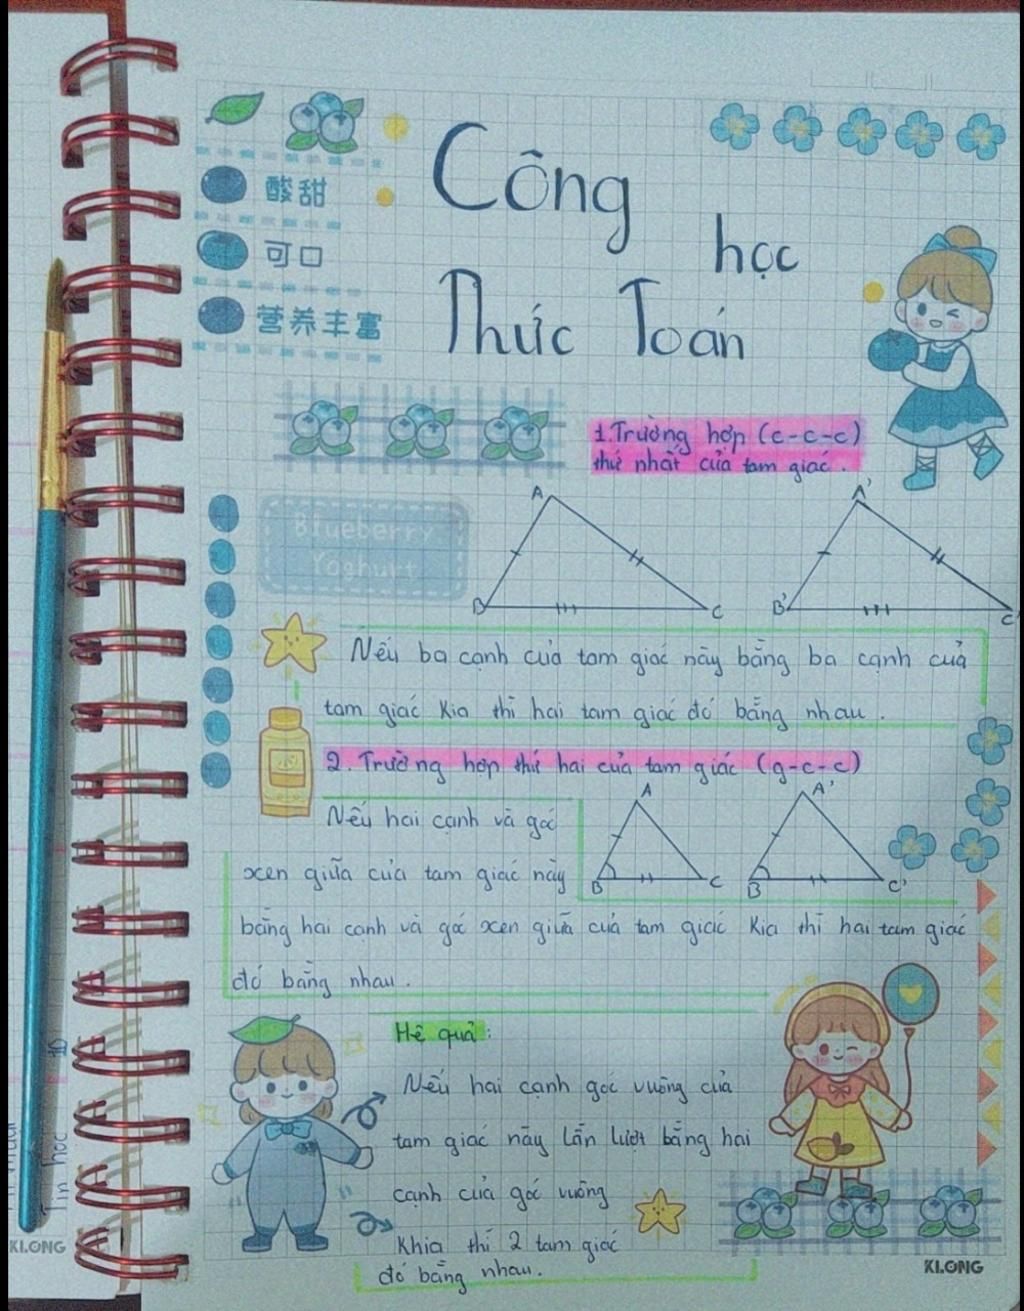 酸甜
可口
营养丰富
Công
học
Thức Toán
1. Trường hợp (c-c-c)
thứ nhất của tam giác.
Blueberry
Yoghurt
A
B
C
A'
B'
C'
Nếu ba cạnh của tam giác này bằng ba cạnh của
tam giác kia thì hai tam giác đó bằng nhau.
2. Trường hợp thứ hai của tam giác (g-c-c)
A
B
C
A'
B
C'
Nếu hai cạnh và góc
xen giữa của tam giác này
bằng hai cạnh và góc xen giữa của tam giác kia thì hai tam giác
đó bằng nhau.
Hệ quả:
Nếu hai cạnh góc vuông của
tam giác này lần lượt bằng hai
cạnh của góc vuông
khia thì 2 tam giác
đó bằng nhau.
Tin học
KLONG
KLONG